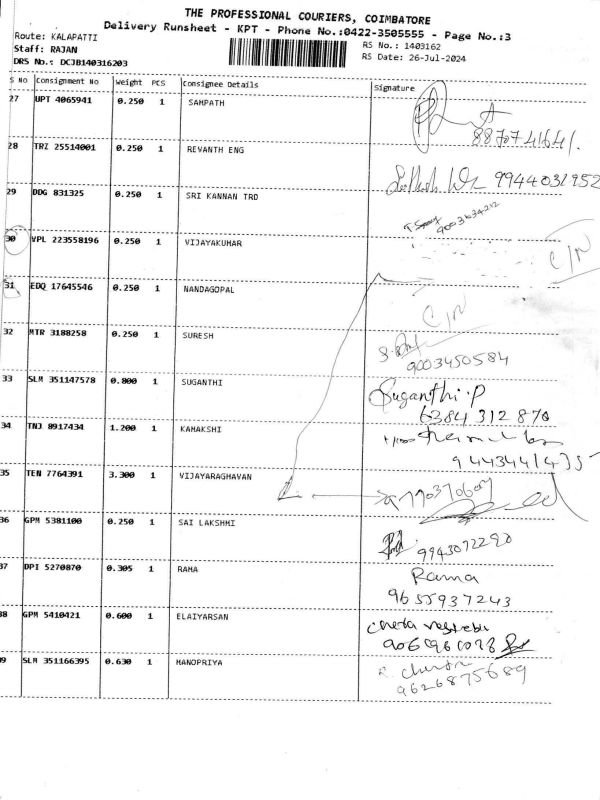 THE PROFESSIONAL COURIERS, COIMBATORE
Delivery Runsheet - KPT - Phone No.:0422-3505555 - Page No.:3
Route: KALAPATTI
RS No.: 1403162
Staff: RAJAN
RS Date: 26-Jul-2024
DRS No.: DCJB140316203
S No Consignment No Weight PCS Consignee Details Signature
27 UPT 4065941 0.250 1 SAMPATH
28 TRZ 25514001 0.250 1 REVANTH ENG
9944031952
29 DDG 831325 0.250 1 SRI KANNAN TRD
30 VPL 223558196 0.250 1 VIJAYAKUMAR
C/N
31 EDQ 17645546 0.250 1 NANDAGOPAL
C/N
32 MTR 3188258 0.250 1 SURESH
9003450584
33 SLM 351147578 0.800 1 SUGANTHI Suganthi.P
6384 312 870
34 TNJ 8917434 1.200 1 KAMAKSHI
35 TEN 7764391 3.300 1 VIJAYARAGHAVAN
36 GPM 5381100 0.250 1 SAI LAKSHMI
9943072290
37 DPI 5270870 0.305 1 RAMA Rama
9655937243
38 GPM 5410421 0.600 1 ELAIYARSAN
39 SLM 351166395 0.630 1 MANOPRIYA
9626875689